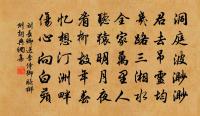 洞庭波渺渺
君去吊靈均
幾路三湘水
全家萬里人
聽猿明月夜
看柳故年春
憶想汀洲畔
傷心向白蘋
劉長卿送李侍御貶郴
州